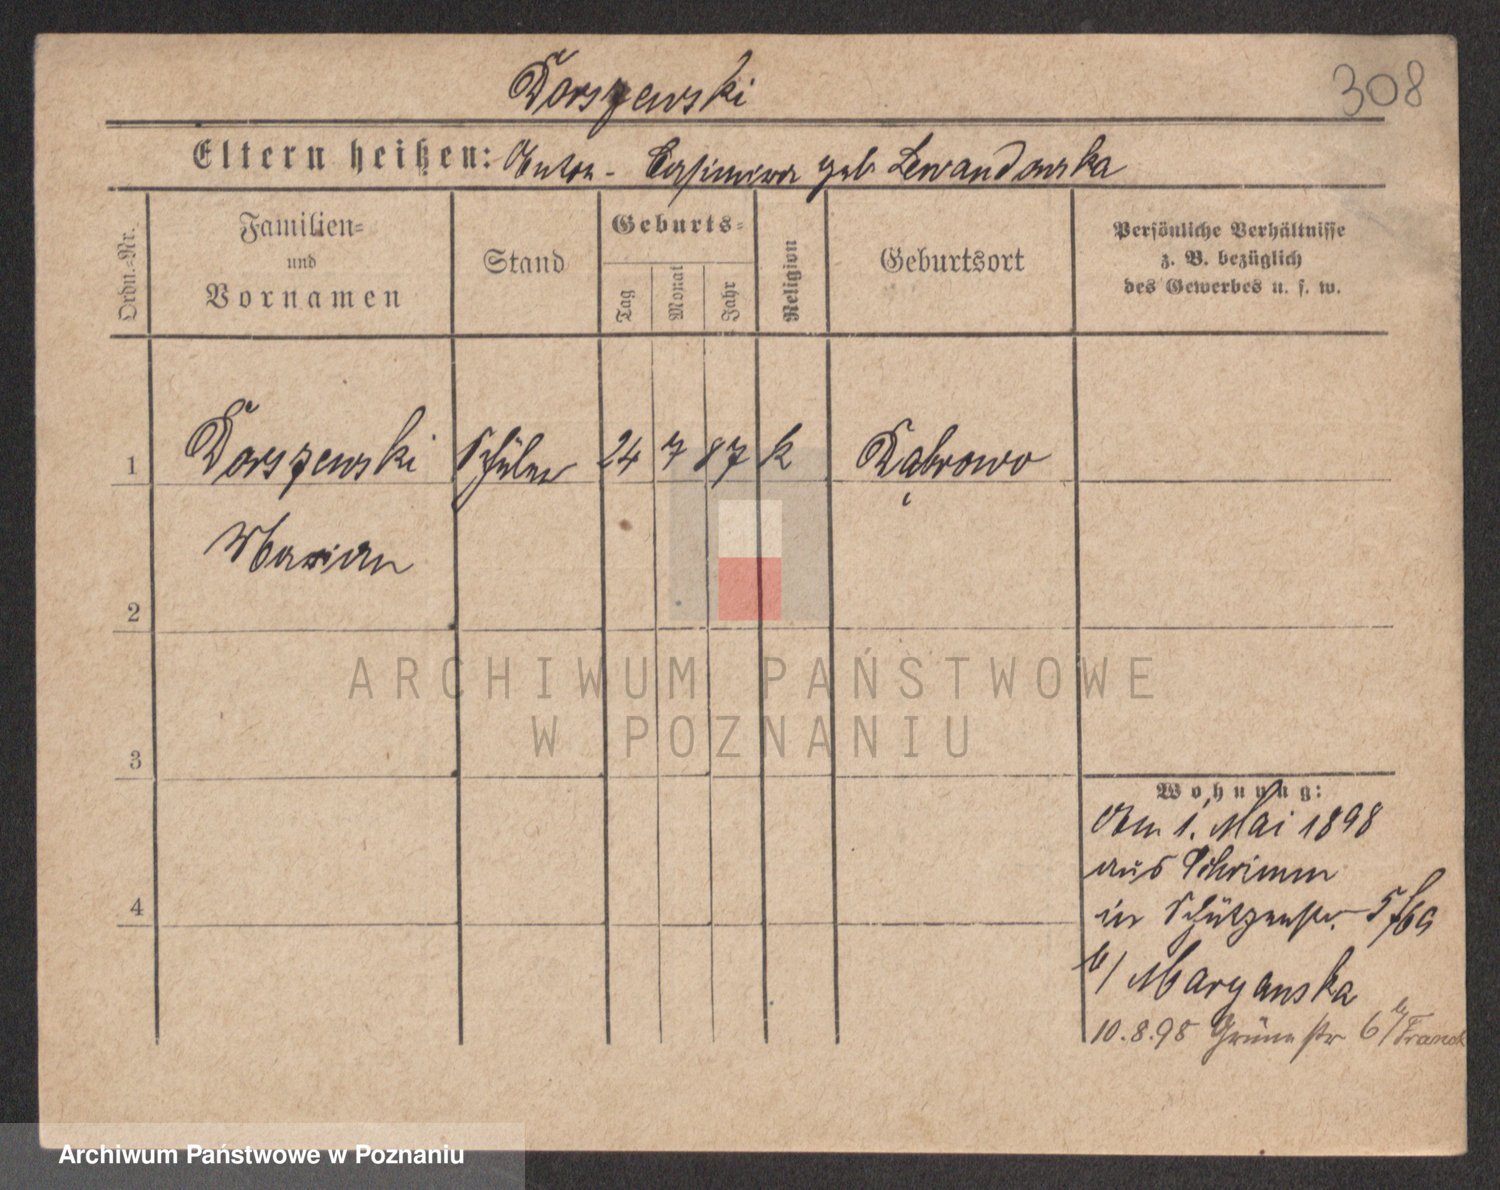 308
Dorszewski
Eltern heißen: Anton - Casimira geb Lewandowska
Ordn.-Nr.
Familien-
und
Vornamen
Stand
Geburts-
Tag
Monat
Jahr
Religion
Geburtsort
Persönliche Verhältnisse
z. B. bezüglich
des Gewerbes u. s. w.
1 Dorszewski Schüler 24 7 87 k Dąbrowo
Marian
2
3
4
Wohnung:
Am 1. Mai 1898
aus Schrimm
in Schützenstr. 5
b/ Maryanska
10.8.98 Grünestr 6 b/
ARCHIWUM PAŃSTWOWE
W POZNANIU
Archiwum Państwowe w Poznaniu